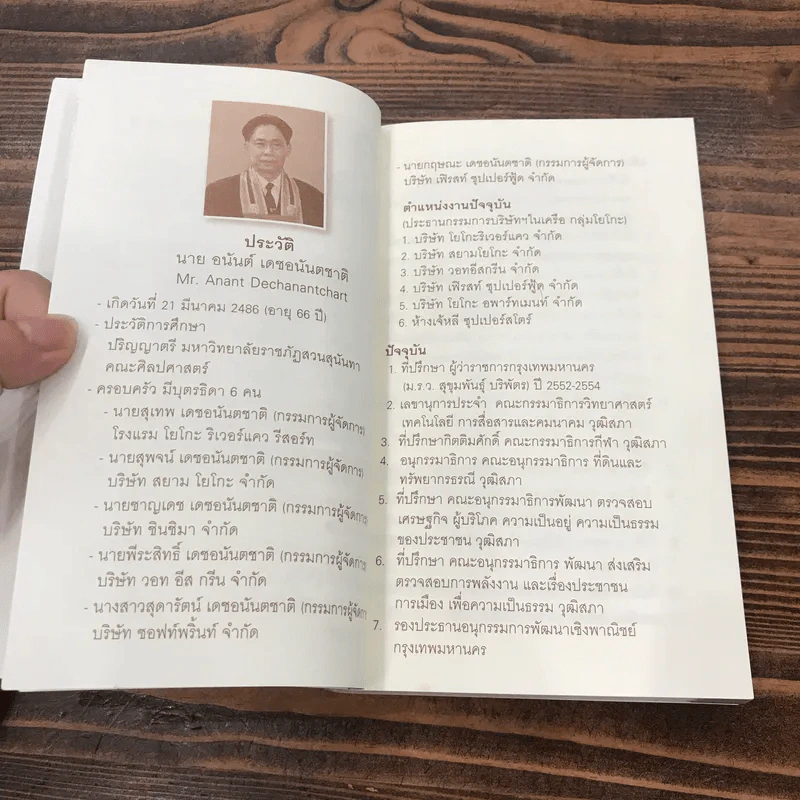 ประวัติ
นาย อนันต์ เดชอนันตชาติ
Mr. Anant Dechanantchart
- เกิดวันที่ 21 มีนาคม 2486 (อายุ 66 ปี)
- ประวัติการศึกษา
ปริญญาตรี มหาวิทยาลัยราชภัฏสวนสุนันทา
คณะศิลปศาสตร์
- ครอบครัว มีบุตรธิดา 6 คน
- นายสุเทพ เดชอนันตชาติ (กรรมการผู้จัดการ)
โรงแรม โยโกะ ริเวอร์แคว รีสอร์ท
- นายสุพจน์ เดชอนันตชาติ (กรรมการผู้จัดการ)
บริษัท สยาม โยโกะ จำกัด
- นายชาญเดช เดชอนันตชาติ (กรรมการผู้จัดการ)
บริษัท ชินชิมา จำกัด
- นายพีระสิทธิ์ เดชอนันตชาติ (กรรมการผู้จัดการ)
บริษัท วอท อีส กรีน จำกัด
- นางสาวสุดารัตน์ เดชอนันตชาติ (กรรมการผู้จัดการ
บริษัท ซอฟท์พริ้นท์ จำกัด
- นายกฤษณะ เดชอนันตชาติ (กรรมการผู้จัดการ)
บริษัท เฟิรสท์ ซุปเปอร์ฟู้ด จำกัด
ตำแหน่งงานปัจจุบัน
(ประธานกรรมการบริษัทฯในเครือ กลุ่มโยโกะ)
1. บริษัท โยโกะริเวอร์แคว จำกัด
2. บริษัท สยามโยโกะ จำกัด
3. บริษัท วอทอีสกรีน จำกัด
4. บริษัท เฟิรสท์ ซุปเปอร์ฟู้ด จำกัด
5. บริษัท โยโกะ อพาร์ทเมนท์ จำกัด
6. ห้างเจ้หลี ซุปเปอร์สโตร์
ปัจจุบัน
1. ที่ปรึกษา ผู้ว่าราชการกรุงเทพมหานคร
(ม.ร.ว. สุขุมพันธุ์ บริพัตร) ปี 2552-2554
2. เลขานุการประจำ คณะกรรมาธิการวิทยาศาสตร์
เทคโนโลยี การสื่อสารและคมนาคม วุฒิสภา
3. ที่ปรึกษากิตติมศักดิ์ คณะกรรมาธิการกีฬา วุฒิสภา
4. อนุกรรมาธิการ คณะอนุกรรมาธิการ ที่ดินและ
ทรัพยากรธรณี วุฒิสภา
5. ที่ปรึกษา คณะอนุกรรมาธิการพัฒนา ตรวจสอบ
เศรษฐกิจ ผู้บริโภค ความเป็นอยู่ ความเป็นธรรม
ของประชาชน วุฒิสภา
6. ที่ปรึกษา คณะอนุกรรมาธิการ พัฒนา ส่งเสริม
ตรวจสอบการพลังงาน และเรื่องประชาชน
การเมือง เพื่อความเป็นธรรม วุฒิสภา
7. รองประธานอนุกรรมการพัฒนาเชิงพาณิชย์
กรุงเทพมหานคร